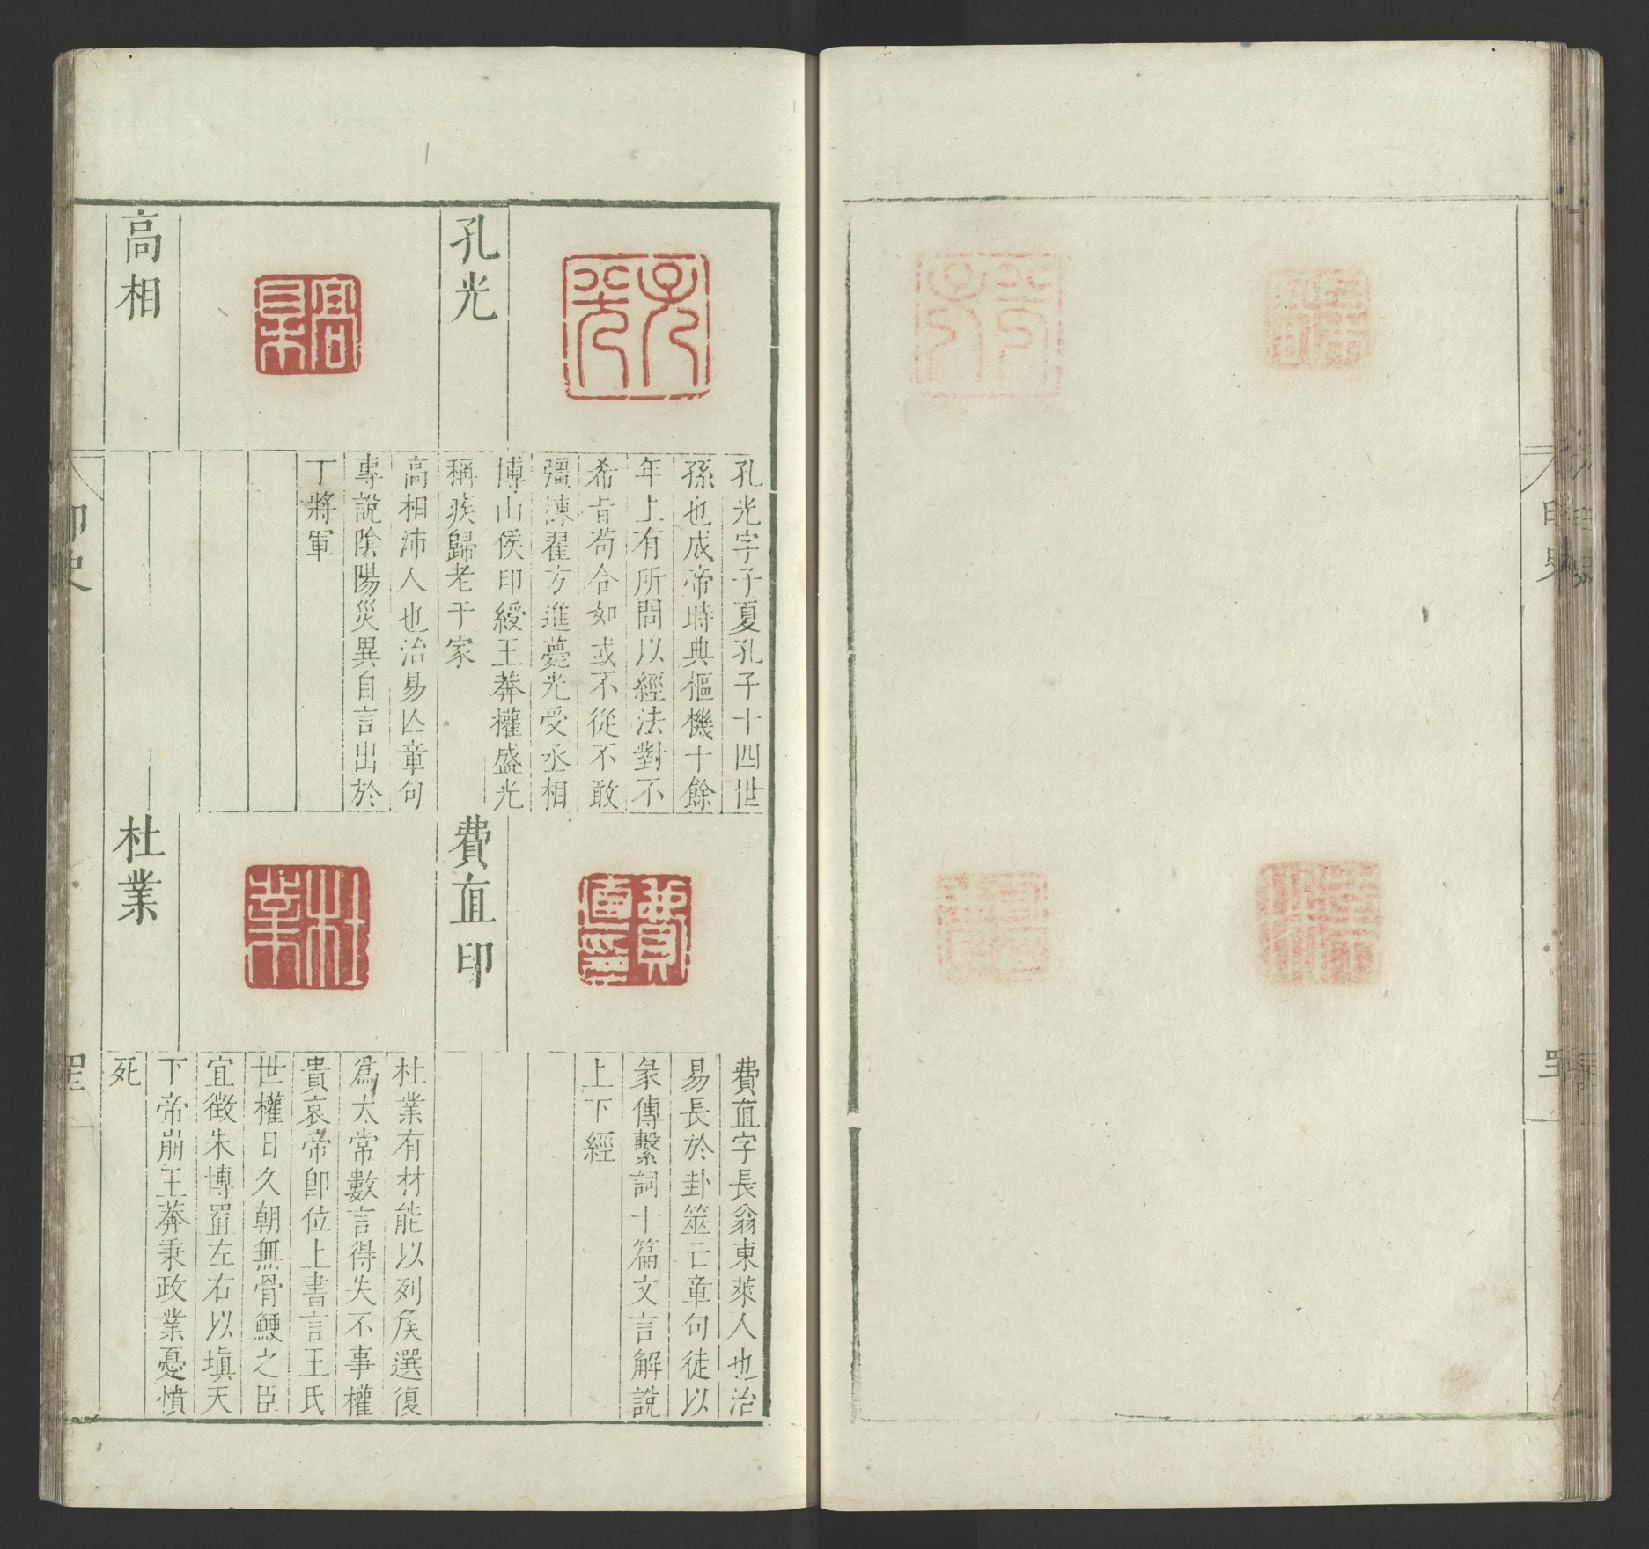 孔光
孔光字子夏孔子十四世
孫也成帝時典樞機十餘
年上有所問以經法對不
希旨苟合如或不從不敢
彊諫翟方進薨光受丞相
博山侯印綬王莽權盛光
稱疾歸老于家
高相
高相沛人也治易亾章句
專說陰陽災異自言出於
丁將軍
費直印
費直字長翁東萊人也治
易長於卦筮亡章句徒以
彖傳繫詞十篇文言解說
上下經
杜業
杜業有材能以列矦選復
爲太常數言得失不事權
貴哀帝卽位上書言王氏
世權日久朝無骨鯁之臣
宜徵朱博置左右以塡天
下帝崩王莽秉政業憂憤
死
印史